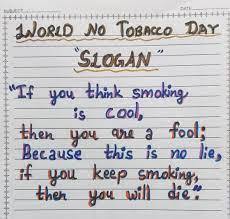 SUBJECT
DATE
WORLD NO TOBACCO DAY
"SLOGAN"
"If you think smoking
is cool,
then you are a fool;
Because this is no lie,
if you keep smoking,
then you will die."